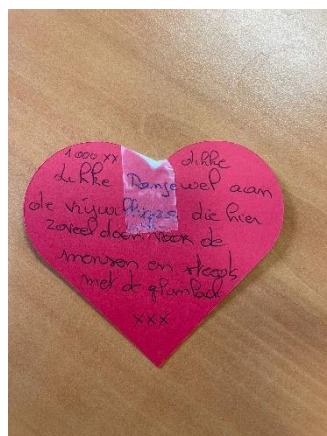 1000 xx dikke
dikke Dankjewel aan
de vrijwilligers die hier
zoveel doen voor de
mensen en steeds
met de glimlach
xxx